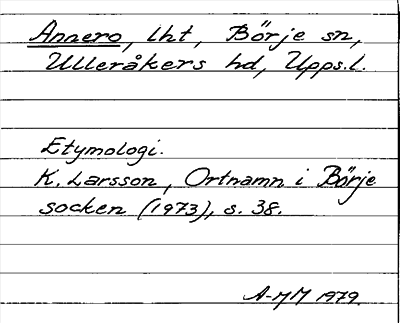 Annero, lht, Börje sn,
Ulleråkers hd, Upps.l.
Etymologi.
K. Larsson, Ortnamn i Börje
socken (1973), s. 38.
A-MM 1979.